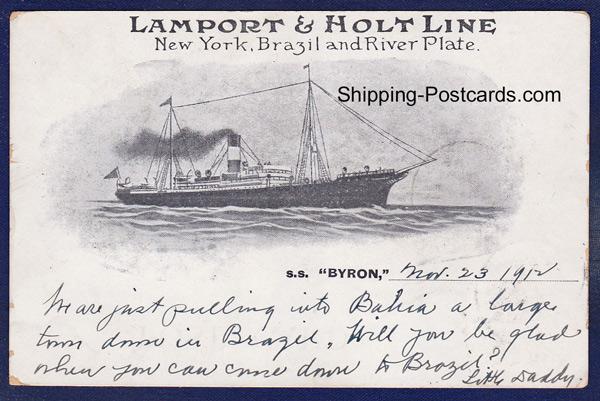 LAMPORT & HOLT LINE
New York, Brazil and River Plate.
Shipping-Postcards.com
s.s. "BYRON," Nov. 23 1912
We are just pulling into Bahia a large
town down in Brazil. Will you be glad
when you can come down to Brazil?
Little Daddy.